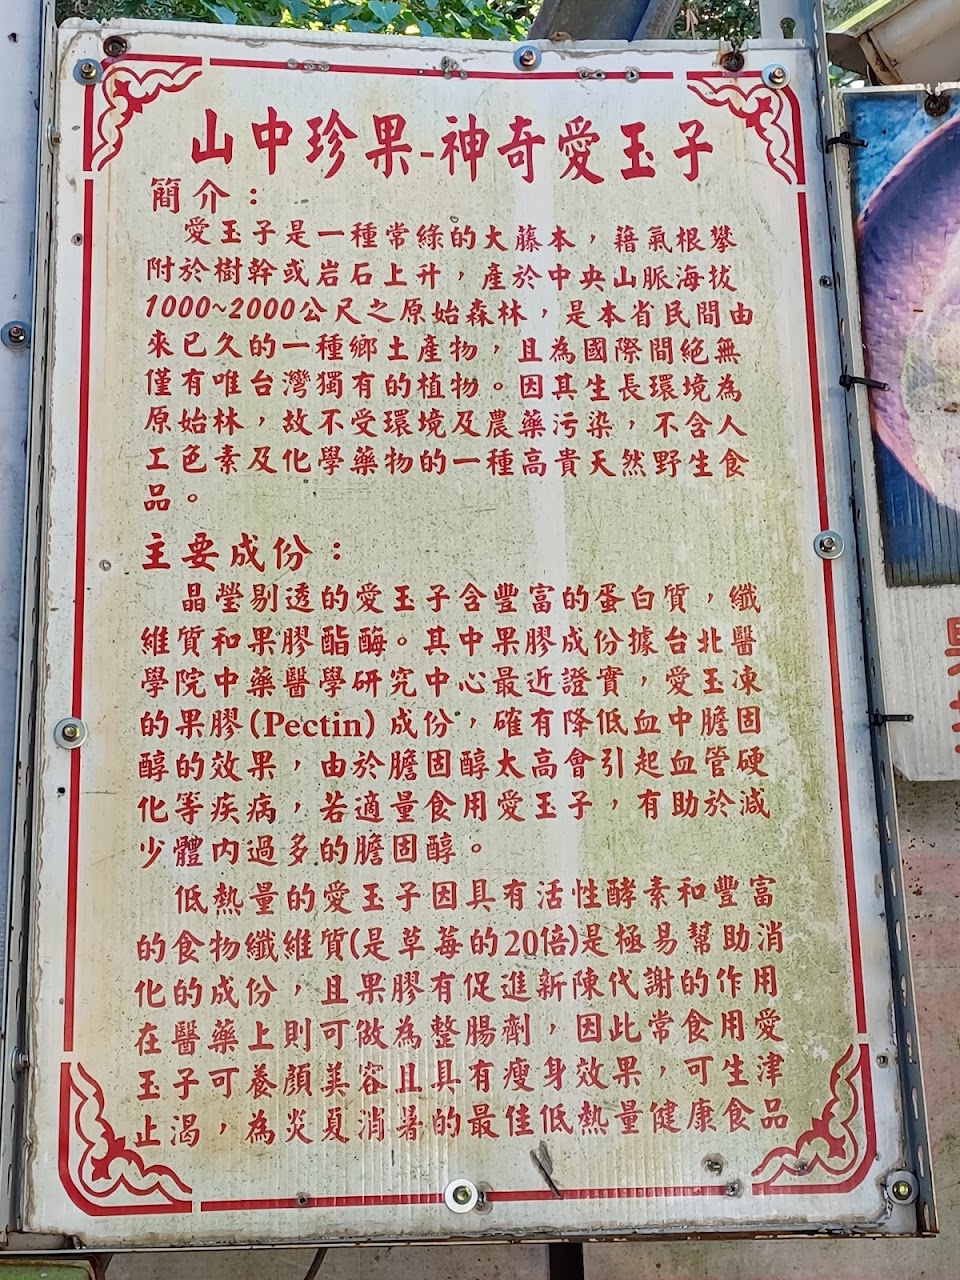 山中珍果-神奇愛玉子
簡介：
愛玉子是一種常綠的大藤本，藉氣根攀
附於樹幹或岩石上升，產於中央山脈海拔
1000~2000公尺之原始森林，是本省民間由
來已久的一種鄉土產物，且為國際間絕無
僅有唯台灣獨有的植物。因其生長環境為
原始林，故不受環境及農藥污染，不含人
工色素及化學藥物的一種高貴天然野生食
品。
主要成份：
晶瑩剔透的愛玉子含豐富的蛋白質，纖
維質和果膠酯酶。其中果膠成份據台北醫
學院中藥醫學研究中心最近證實，愛玉凍
的果膠(Pectin)成份，確有降低血中膽固
醇的效果，由於膽固醇太高會引起血管硬
化等疾病，若適量食用愛玉子，有助於減
少體內過多的膽固醇。
低熱量的愛玉子因具有活性酵素和豐富
的食物纖維質(是草莓的20倍)是極易幫助消
化的成份，且果膠有促進新陳代謝的作用
在醫藥上則可做為整腸劑，因此常食用愛
玉子可養顏美容且具有瘦身效果，可生津
止渴，為炎夏消暑的最佳低熱量健康食品